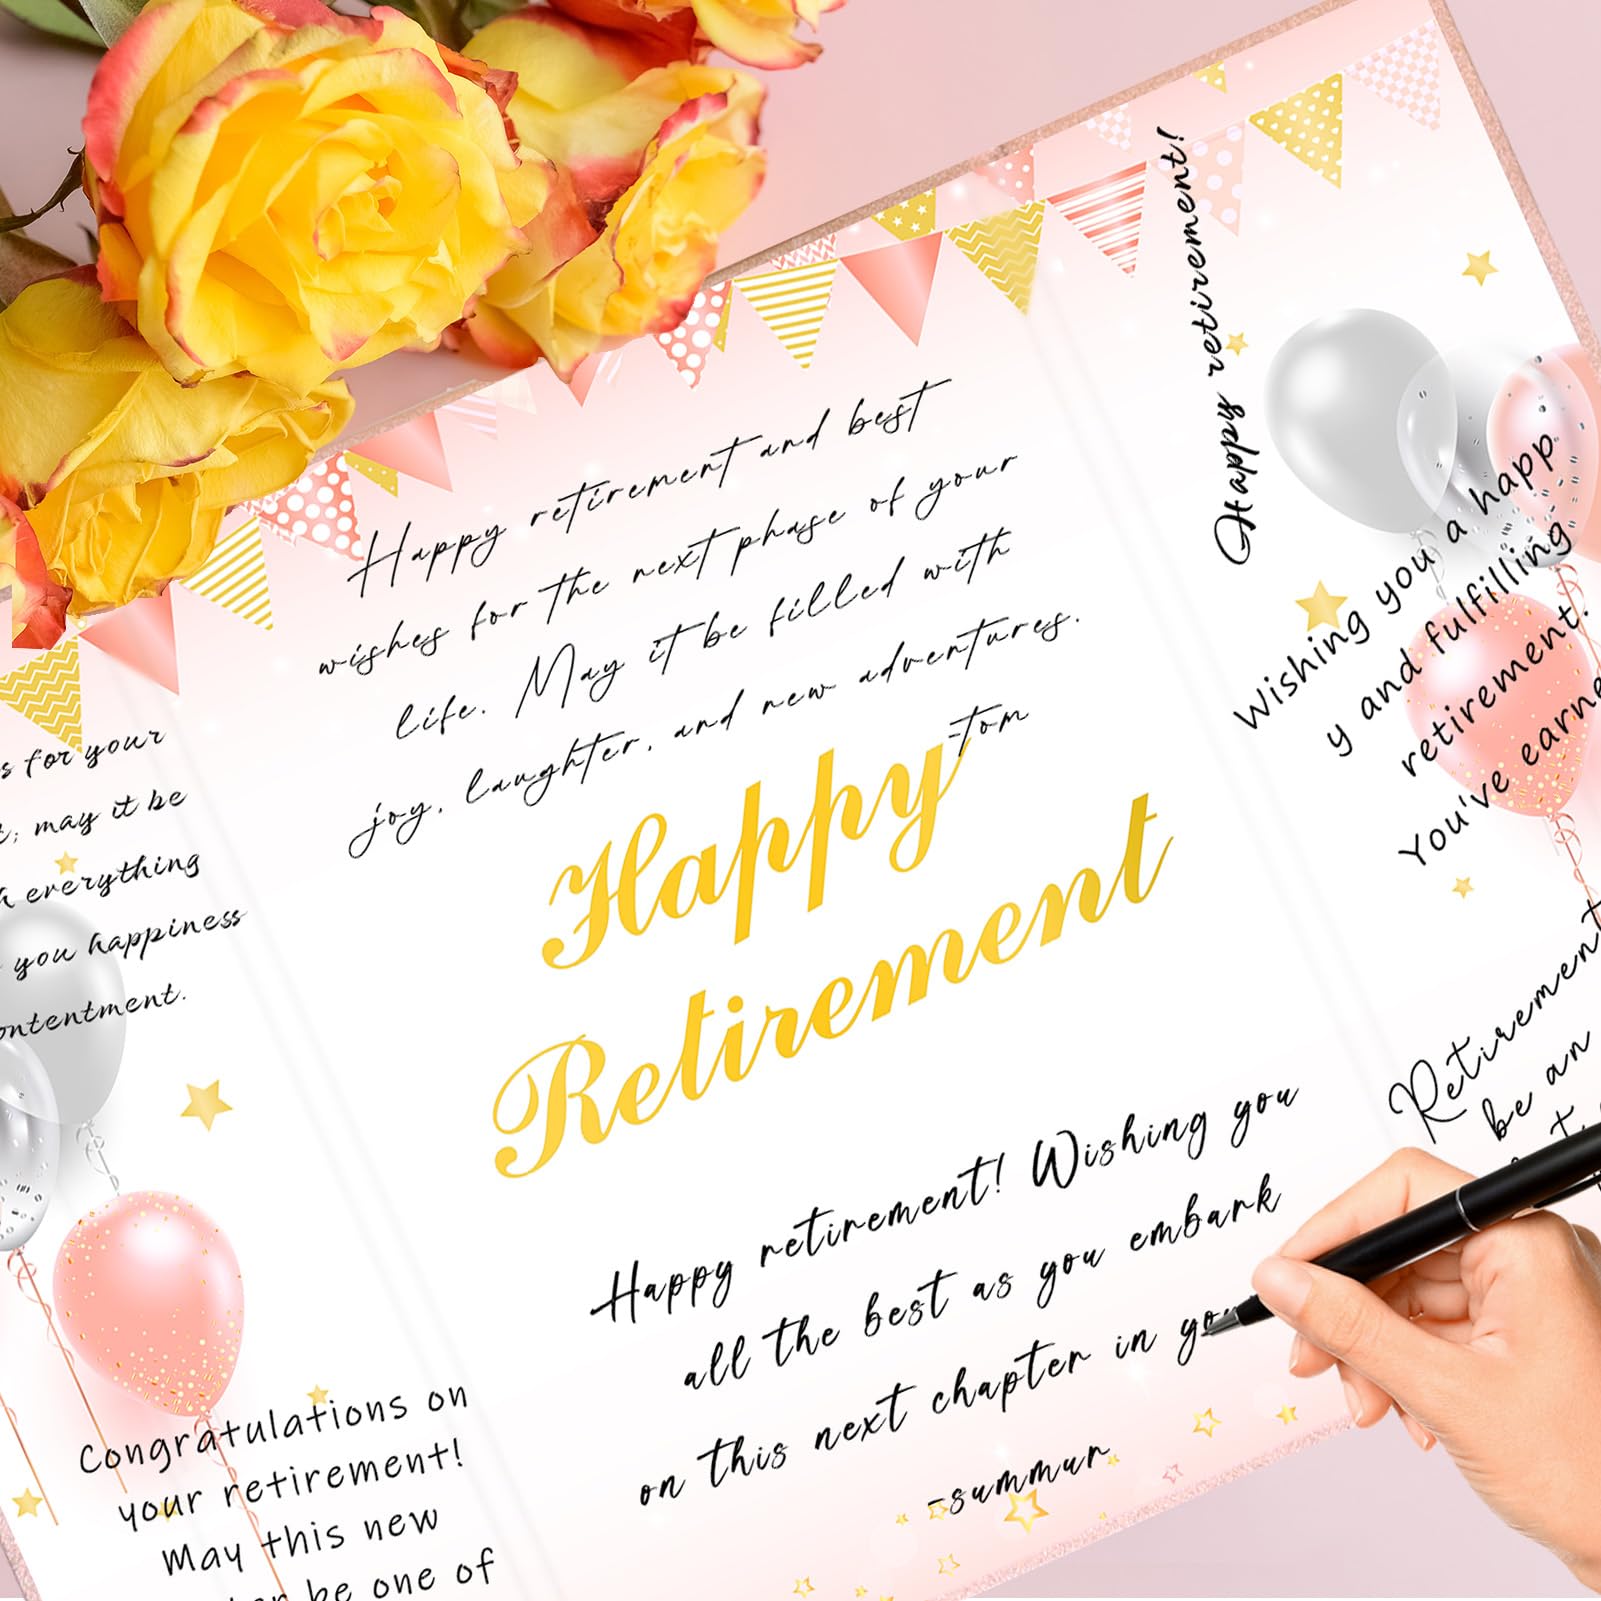 Happy retirement and best
wishes for the next phase of your
life. May it be filled with
joy, laughter, and new adventures.
-tom
Happy
Retirement
Happy retirement! Wishing you
all the best as you embark
on this next chapter in
-summur
s for your
may it be
everything
you happiness
ontentment.
Congratulations on
your retirement!
May this new
be one of
Happy retirement!
Wishing you a happ
y and fulfilling
retirement.
You've earne
Retirement
be an